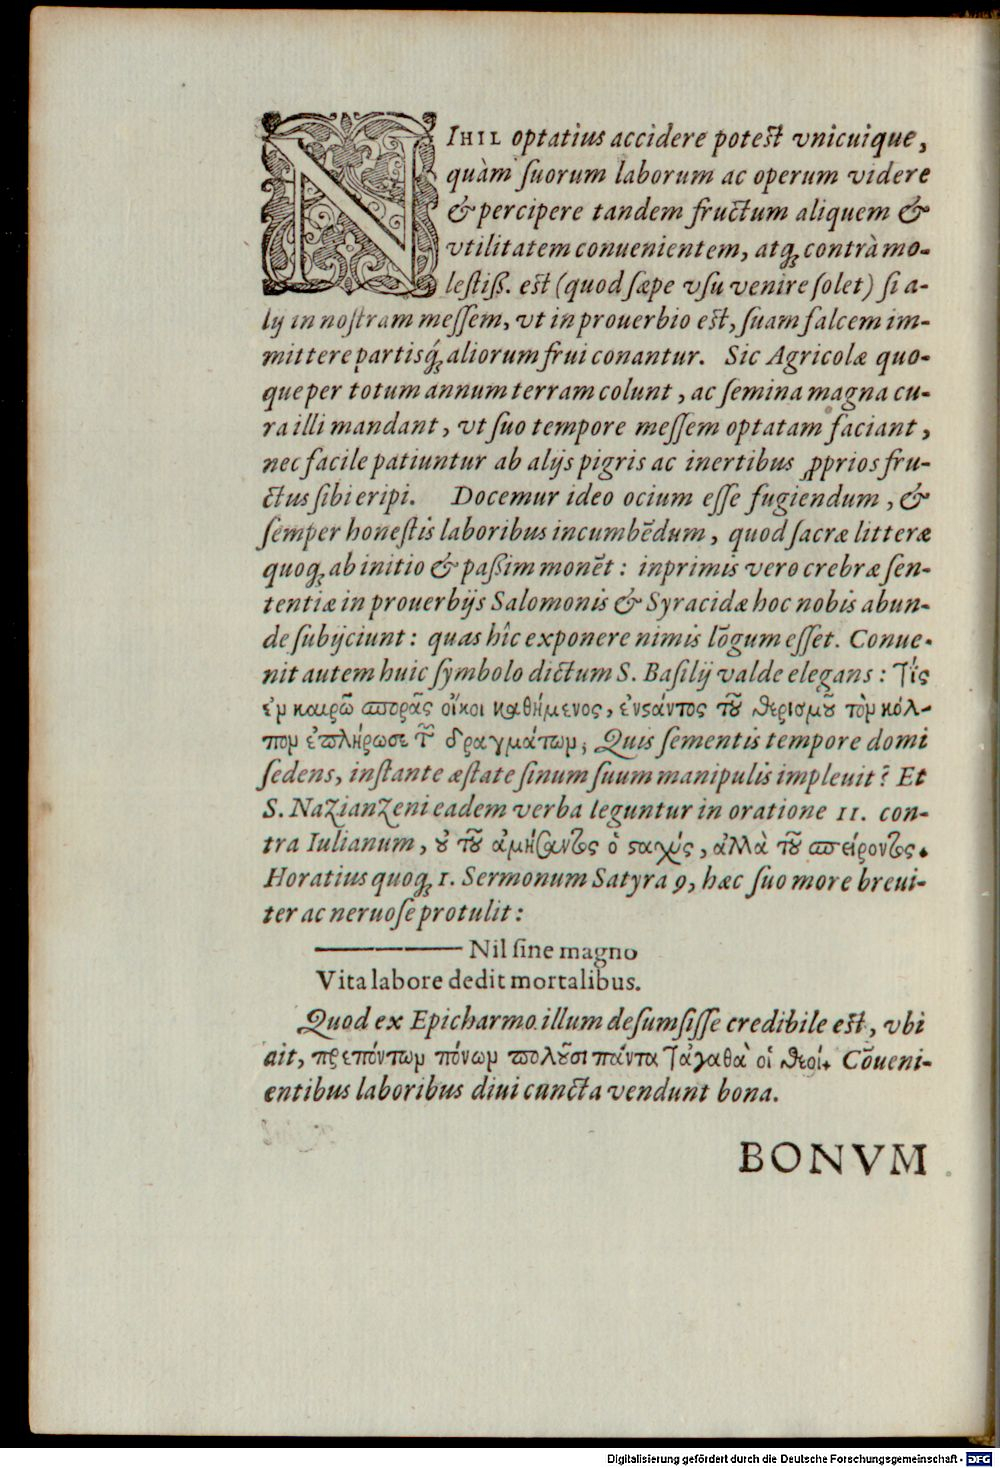 NIHIL optatius accidere potest vnicuique,
quàm suorum laborum ac operum videre
& percipere tandem fructum aliquem &
vtilitatem conuenientem, atq; contrà mo-
lestiß. est (quod sæpe vsu venire solet) si a-
lij in nostram messem, vt in prouerbio est, suam falcem im-
mittere partisq́; aliorum frui conantur. Sic Agricolæ quo-
que per totum annum terram colunt, ac semina magna cu-
ra illi mandant, vt suo tempore messem optatam faciant,
nec facile patiuntur ab alijs pigris ac inertibus ꝓprios fru-
ctus sibi eripi. Docemur ideo ocium esse fugiendum, &
semper honestis laboribus incumbēdum, quod sacræ litteræ
quoq; ab initio & paßim monēt: inprimis vero crebræ sen-
tentiæ in prouerbijs Salomonis & Syracidæ hoc nobis abun-
de subijciunt: quas hîc exponere nimis lōgum esset. Conue-
nit autem huic symbolo dictum S. Basilij valde elegans: Τίς
ἐν καιρῷ σπορᾶς οἴκοι καθήμενος, ἐνστάντος τοῦ θερισμοῦ τὸν κόλ-
πον ἐπλήρωσε τ̃ δραγμάτων; Quis sementis tempore domi
sedens, instante æstate sinum suum manipulis impleuit? Et
S. Nazianzeni eadem verba leguntur in oratione 11. con-
tra Iulianum, οὐ τοῦ ἀμήσαντος ὁ σταχύς, ἀλλὰ τοῦ σπείροντος.
Horatius quoq; 1. Sermonum Satyra 9, hæc suo more breui-
ter ac neruose protulit:
——— Nil sine magno
Vita labore dedit mortalibus.
Quod ex Epicharmo illum desumsisse credibile est, vbi
ait, πρεπόντων πόνων πολοῦσι πάντα τἀγαθὰ οἱ θεοί. Cōueni-
entibus laboribus diui cuncta vendunt bona.
BONVM
Digitalisierung gefördert durch die Deutsche Forschungsgemeinschaft - DFG